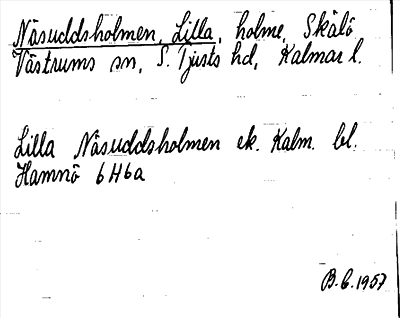 Näsuddsholmen, Lilla, holme, Skälö
Västrums sn, S. Tjusts hd, Kalmar l.
Lilla Näsuddsholmen ek. Kalm. bl.
Hamnö 6H6a
B.C. 1957